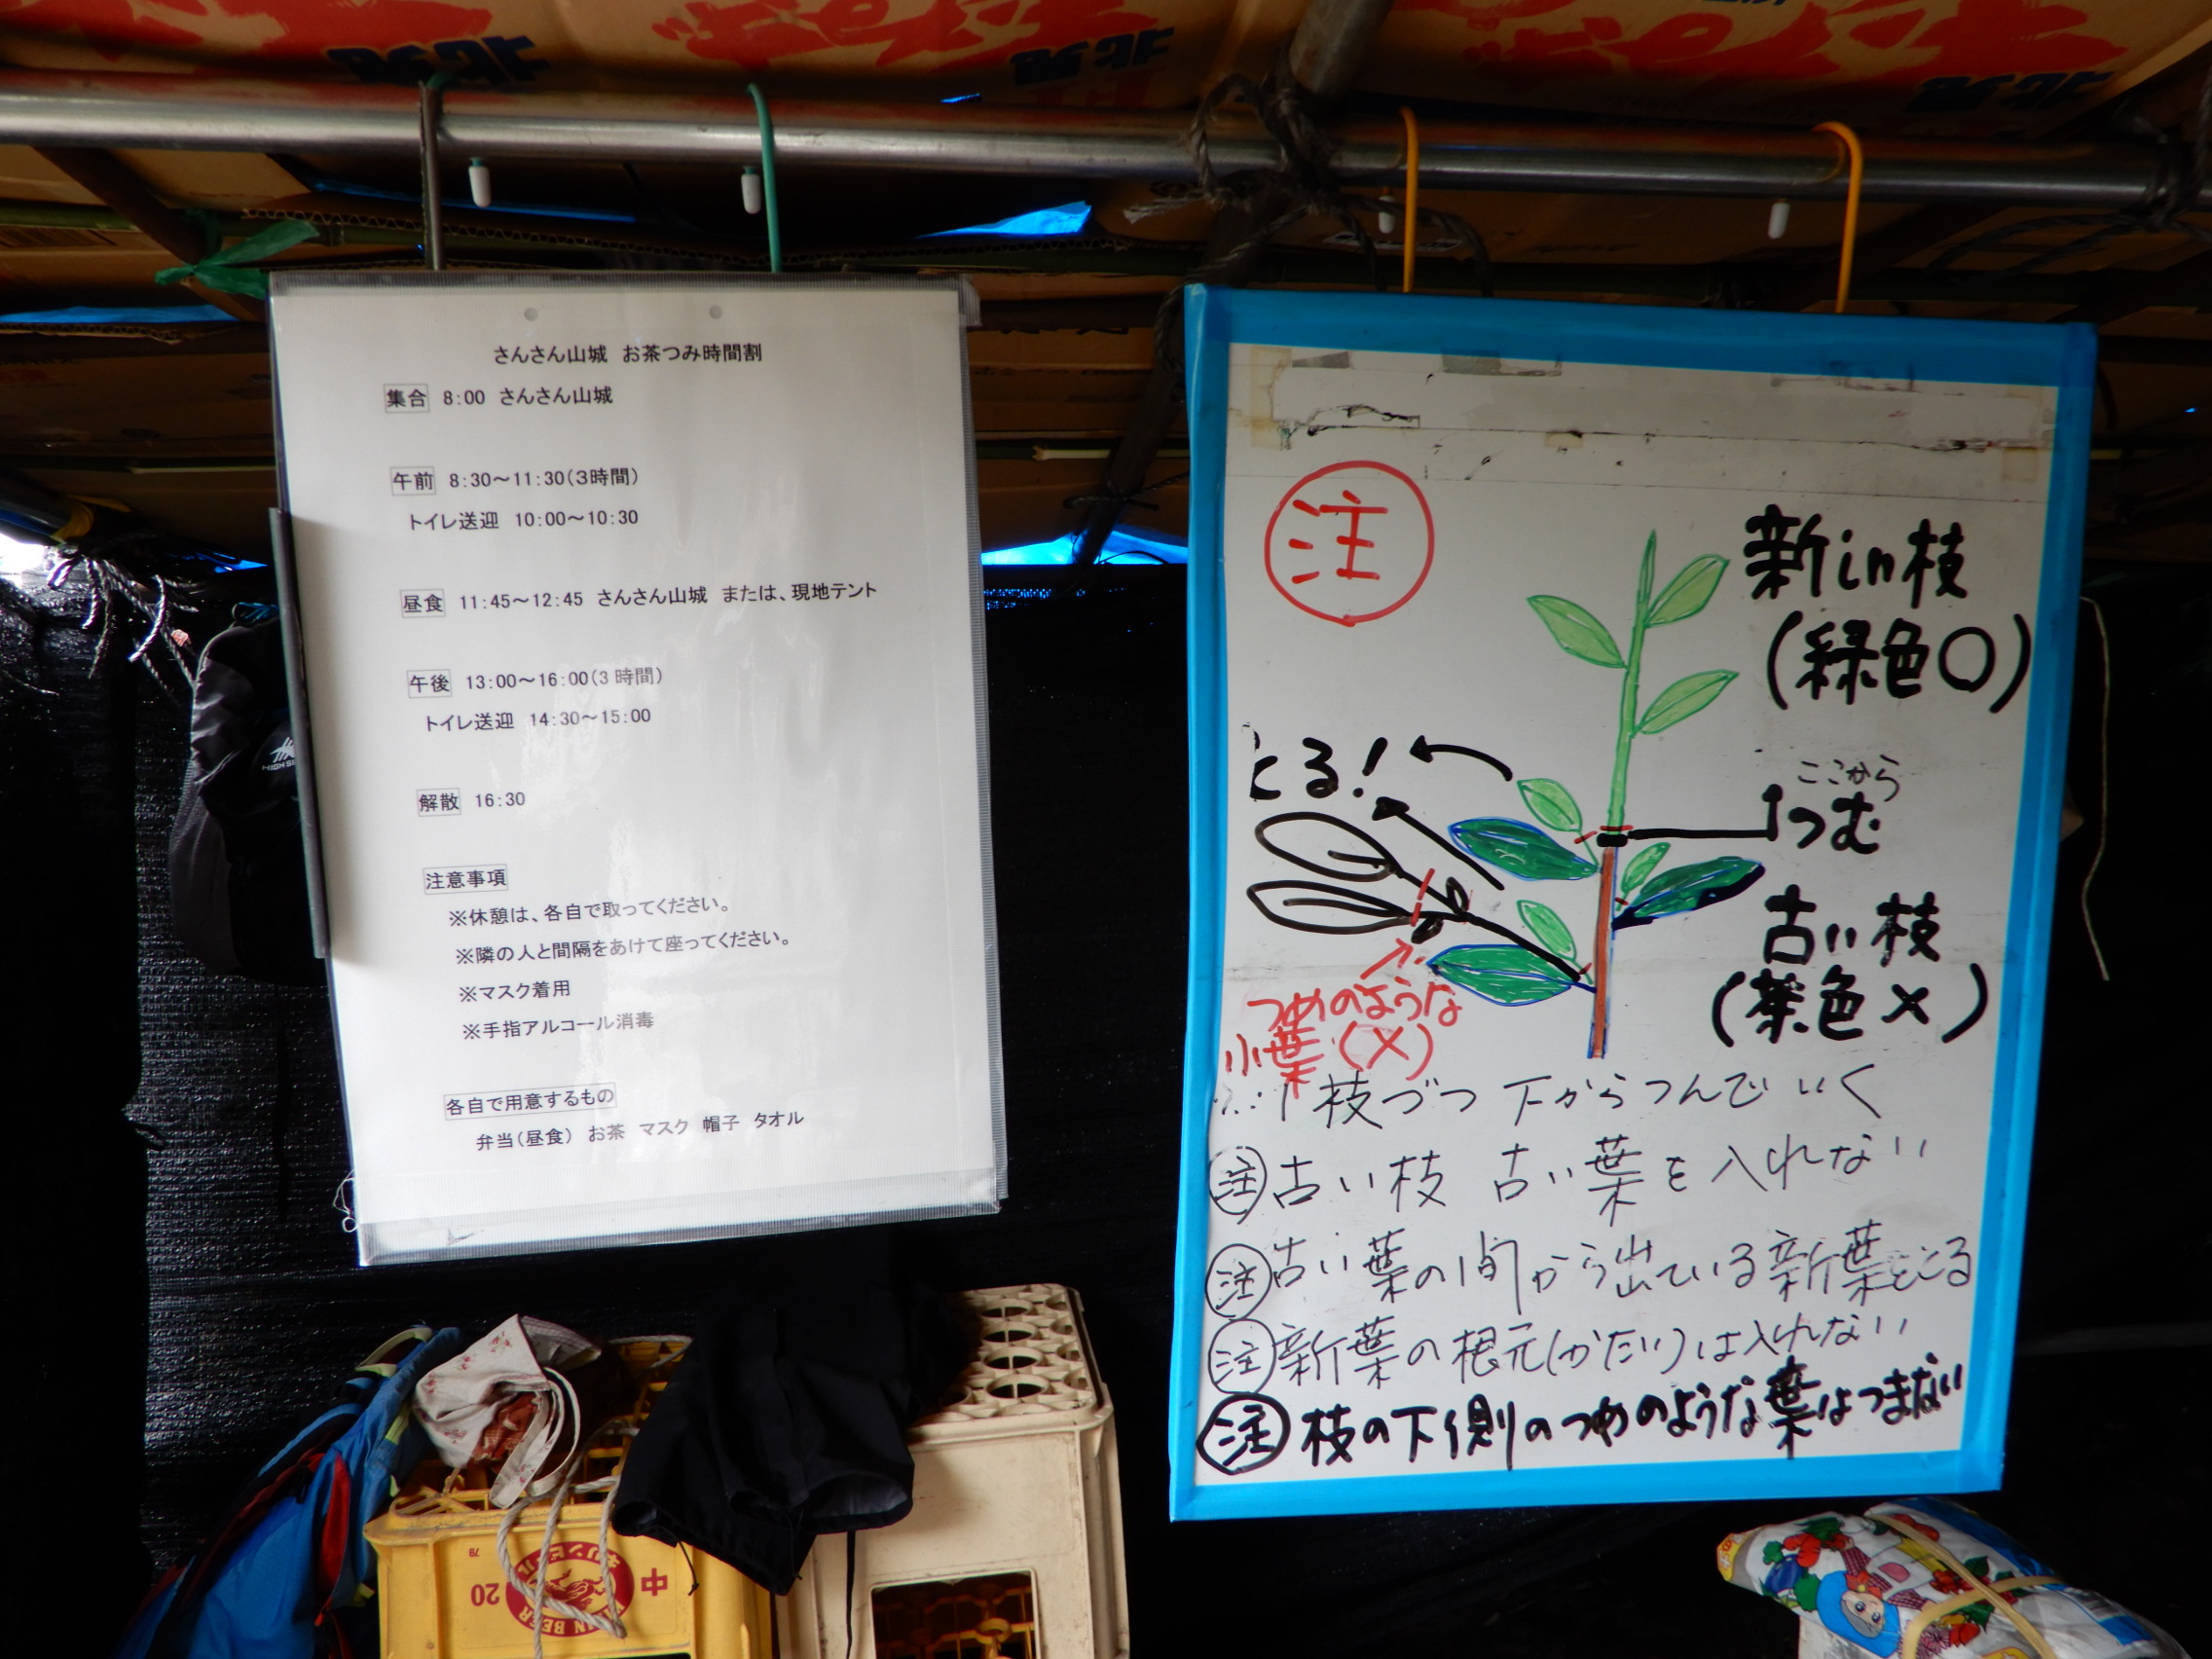 さんさん山城 お茶つみ時間割
集合 8:00 さんさん山城
午前 8:30～11:30(3時間)
トイレ送迎 10:00～10:30
昼食 11:45～12:45 さんさん山城 または、現地テント
午後 13:00～16:00(3時間)
トイレ送迎 14:30～15:00
解散 16:30
注意事項
※休憩は、各自で取ってください。
※隣の人と間隔をあけて座ってください。
※マスク着用
※手指アルコール消毒
各自で用意するもの
弁当(昼食) お茶 マスク 帽子 タオル
注
新しい枝
(緑色○)
とる!
ここから
つむ
古い枝
(茶色×)
つめのような
小葉(×)
1枝づつ 下からつんでいく
注 古い枝 古い葉を入れない
注 古い葉の間から出ている新葉をとる
注 新葉の根元(かたい)は入れない
注 枝の下側のつめのような葉はつまない
北見
北見
北見
キリンビール
KIRIN BEER
中
20
79